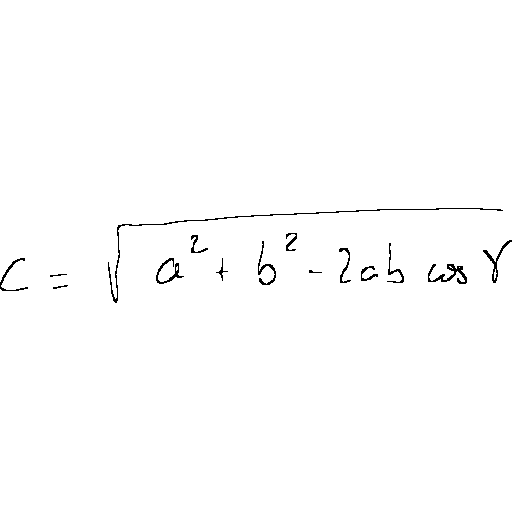 c = √(a² + b² - 2ab cos γ)